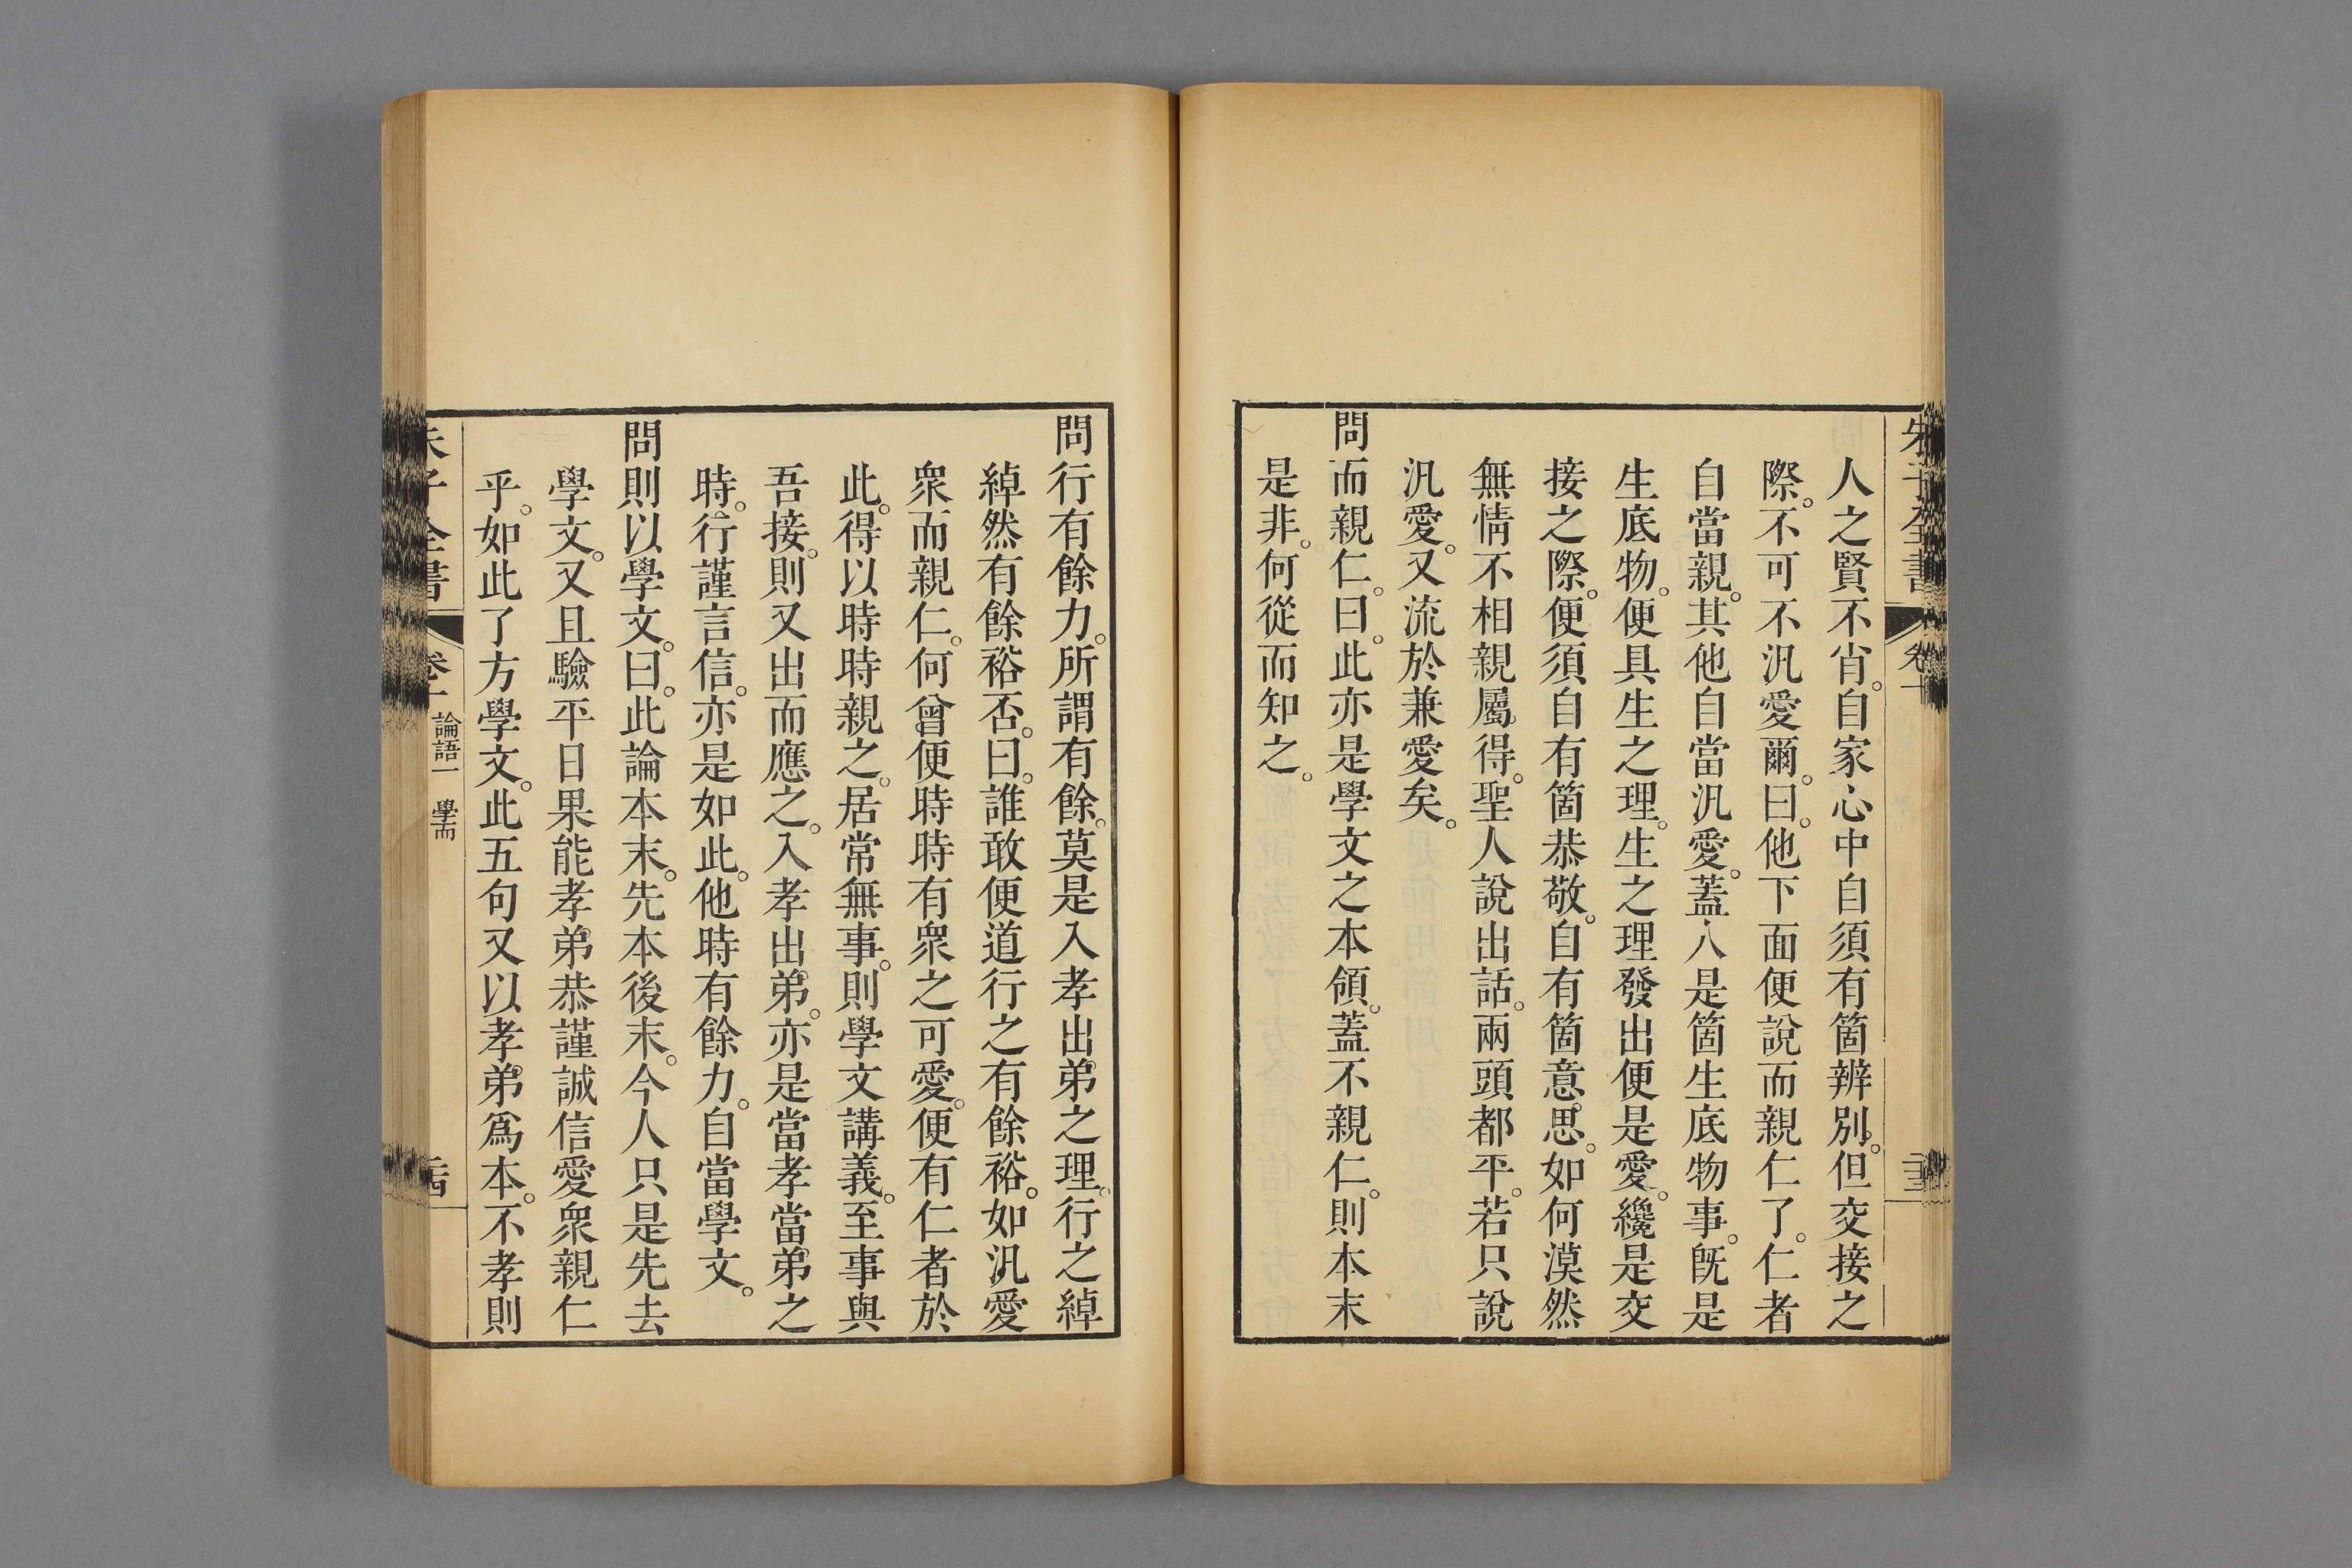 朱子全書 卷十
人之賢不肖。自家心中自須有箇辨別。但交接之
際。不可不汎愛爾。曰。他下面便說而親仁了。仁者
自當親。其他自當汎愛。蓋人是箇生底物事。旣是
生底物。便具生之理。生之理發出便是愛。纔是交
接之際。便須自有箇恭敬。自有箇意思。如何漠然
無情不相親屬得。聖人說出話。兩頭都平。若只說
汎愛。又流於兼愛矣。
問而親仁。曰。此亦是學文之本領。蓋不親仁。則本末
是非。何從而知之。
問行有餘力。所謂有餘。莫是入孝出弟之理。行之綽
綽然有餘裕否。曰。誰敢便道行之有餘裕。如汎愛
衆而親仁。何曾便時時有衆之可愛。便有仁者於
此。得以時時親之。居常無事。則學文講義。至事與
吾接。則又出而應之。入孝出弟。亦是當孝當弟之
時。行謹言信。亦是如此。他時有餘力。自當學文。
問則以學文。曰。此論本末。先本後末。今人只是先去
學文。又且驗平日果能孝弟恭謹誠信愛衆親仁
乎。如此了方學文。此五句又以孝弟爲本。不孝則
朱子全書 卷十 論語一 學而